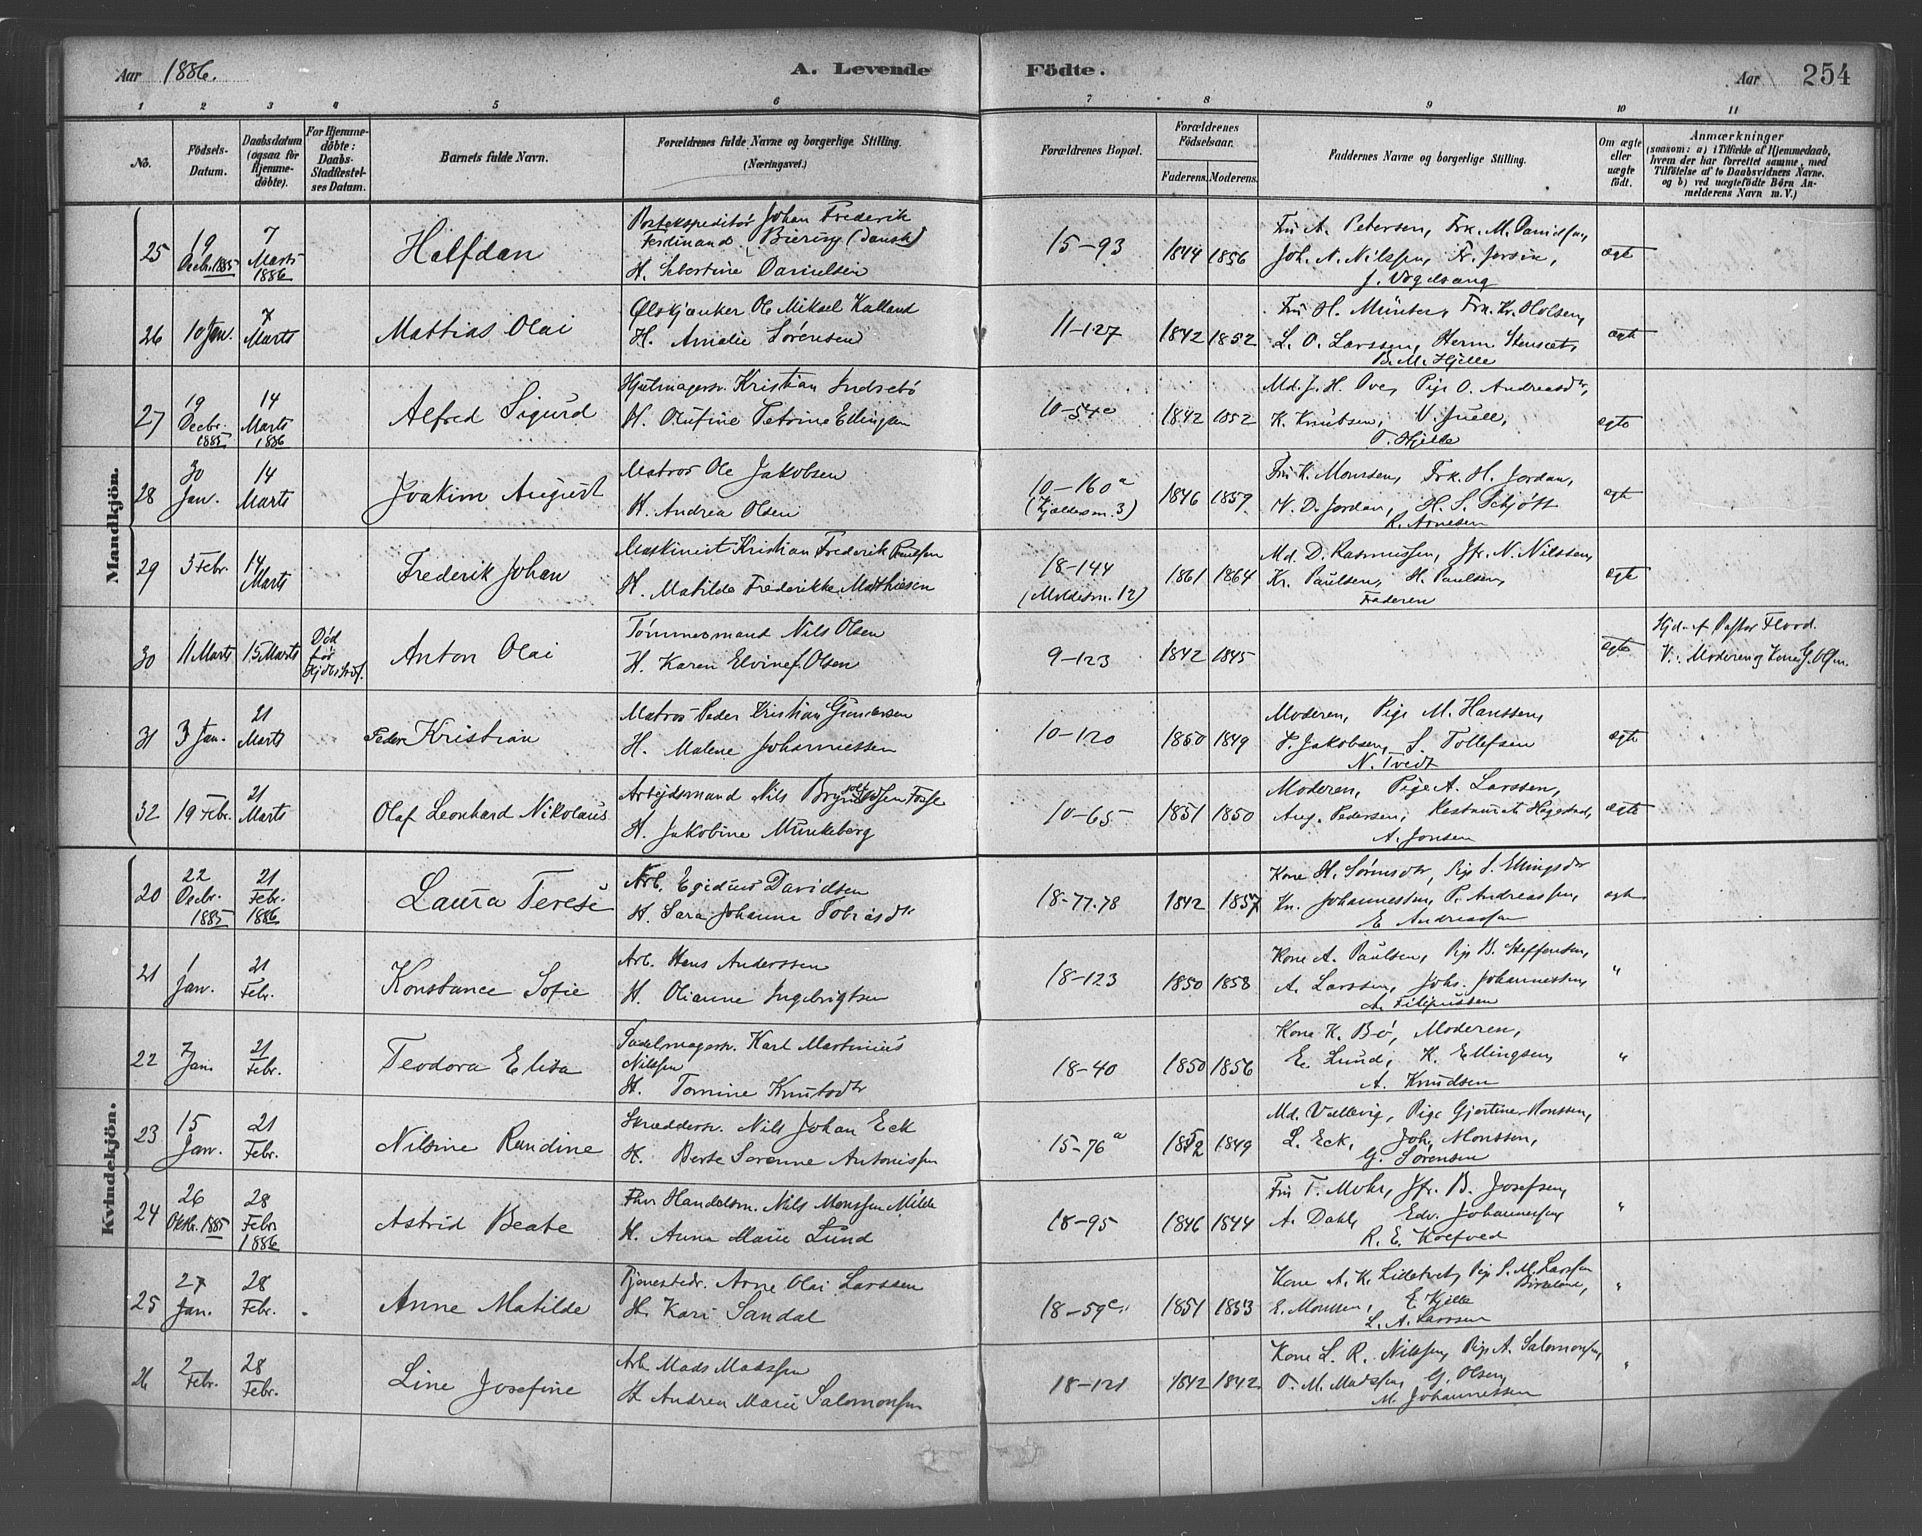 Aar 1886. A. Levende Födte. Aar 254
1 2 3 4 5 6 7 8 9 10 11
No.
Födsels-Datum.
Daabsdatum (ogsaa for Hjemme-döbte).
For Hjemme-döbte: Daabs-Stadfæstel-ses Datum.
Barnets fulde Navn.
Forældrenes fulde Navne og borgerlige Stilling. (Næringsvei.)
Forældrenes Bopæl.
Forældrenes Födselsaar.
Faderens. Moderens.
Faddernes Navne og borgerlige Stilling.
Om ægte eller uægte födt.
Anmærkninger
(saasom: a) i Tilfælde af Hjemmedaab, hvem der har forrettet samme, med Tilföielse af to Daabsvidners Navne. og b) ved uægtefödte Börn An-melderens Navn m. V.)
Mandkjön.
25 19 Decbr. 1885 7 Marts 1886 Halfdan
Postekspeditør Johan Frederik
Ferdinand Biering (Dansk)
H. Danielsen
15-93 1844 1856
Fru A. Petersen, Frk. M. Davidsen,
Joh. N. Nilssen, Fr. Jersin,
J. Vogelsang
ægte
26 10 Jan. 7 Marts Mattias Olai
Ølskjænker Ole Mikael Kalland
H. Amalie Sørensen
11-127 1842 1852
Fru H. Münter, Frk. Kr. Holsen,
L. O. Larssen, Herm Stensæt,
B. M. Hjelle
ægte
27 19 Decbr. 1885 14 Marts 1886 Alfred Sigurd
Hjulmagersv. Kristian Indsebø
H. Olufine Petrine Ellingsen
10-54 c 1842 1852
Md. J. H. Ove, Pige O. Andreasdtr,
K. Knutsen, V. Juell,
O. Hjelle
ægte
28 30 Jan. 14 Marts Joakim August
Matros Ole Jakobsen
H. Andrea Olsen
10-160 a
(Kjeldersm. 3)
1846 1859
Fru K. Monsen, Frk. H. Jordan,
N. D. Jordan, H. S. Schjøtt
R. Arnesen
ægte
29 3 Febr. 14 Marts Frederik Johan
Maskinist Kristian Frederik Paulsen
H. Matilde Frederikke Matthiesen
18-144
(Moldesm. 12)
1861 1864
Md. D. Rasmussen, Jfr. N. Nilssen,
Kr. Paulsen, H. Paulsen,
Faderen
ægte
30 11 Marts 15 Marts Død før Anton Olai
Tømmesmand Nils Olsen
H. Karen Elvine f. Olsen
9-123 1842 1845
ægte
Hjd. af Pastor Flood.
V.: Moderen og Kone G. Olsen.
31 3 Jan. 21 Marts Peder Kristian
Matros Peder Kristian Gundersen
H. Malene Johannessen
10-120 1850 1849
Moderen, Pige M. Hanssen,
J. Jakobsen, S. Tollefsen
N. Tvedt
ægte
32 19 Febr. 21 Marts Olaf Leonhard Nikolaus
Arbejdsmand Nils Brynildsen Fosse
H. Jakobine Munkeberg
10-65 1851 1850
Moderen, Pige A. Larssen,
Aug. Pedersen, Restaurat. Hogestad,
A. Jonsen
ægte
Kvindekjön.
20 22 Decbr. 1885 21 Febr. 1886 Laura Terese
Arb. Egidius Davidsen
H. Sara Johanne Tobiasdtr.
18-77.78 1842 1857
Kone H. Sørensdtr, Pige S. Ellingsdtr
Kn. Johannessen, P. Andreassen,
E. Andreassen
ægte
21 1 Jan. 21 Febr. Konstance Sofie
Arb. Hans Anderssen
H. Olianne Ingebrigtsen
18-123 1850 1858
Kone A. Paulsen, Pige B. Steffensen,
A. Larssen, Johs. Johannessen,
A. Filipussen
"
22 7 Jan. 21 Febr. Teodora Elisa
Sadelmagersv. Karl Martinius
Nilssen
H. Tomine Knutsdtr
18-40 1850 1856
Kone K. Bø, Moderen,
E. Lund, K. Ellingsen,
A. Knudsen
"
23 15 Jan. 21 Febr. Nilsine Randine
Skræddersv. Nils Johan Eck
H. Berte Serenne Antonissen
15-76 a 1852 1849
Md. Vallevig, Pige Gjertine Monssen,
L. Eck, Joh. Monssen,
G. Sørensen
24 26 Oktbr. 1885 28 Febr. 1886 Astrid Beate
Fhv. Handelsm. Nils Monssen Milde
H. Anna Marie Lund
18-95 1846 1844
Fru T. Mohr, Jfr. B. Josefsen,
A. Dahl, Edv. Johannessen,
R. E. Kolfved
"
25 27 Jan. 28 Febr. Anne Matilde
Tjenestedr. Arne Olai Larssen
H. Kari Sandal
18-59 c. 1851 1853
Kone A. K. Lilletvet, Pige S. M. Larssen
Birkeland,
E. Monssen, E. Hjelle
L. A. Larssen
"
26 2 Febr. 28 Febr. Line Josefine
Arb. Mads Madssen
H. Andrea Marie Salomonsen
18-121 1842 1842
Kone L. R. Nilssen, Pige A. Salomonsen,
O. M. Madssen, G. Olsen,
M. Johannessen
"